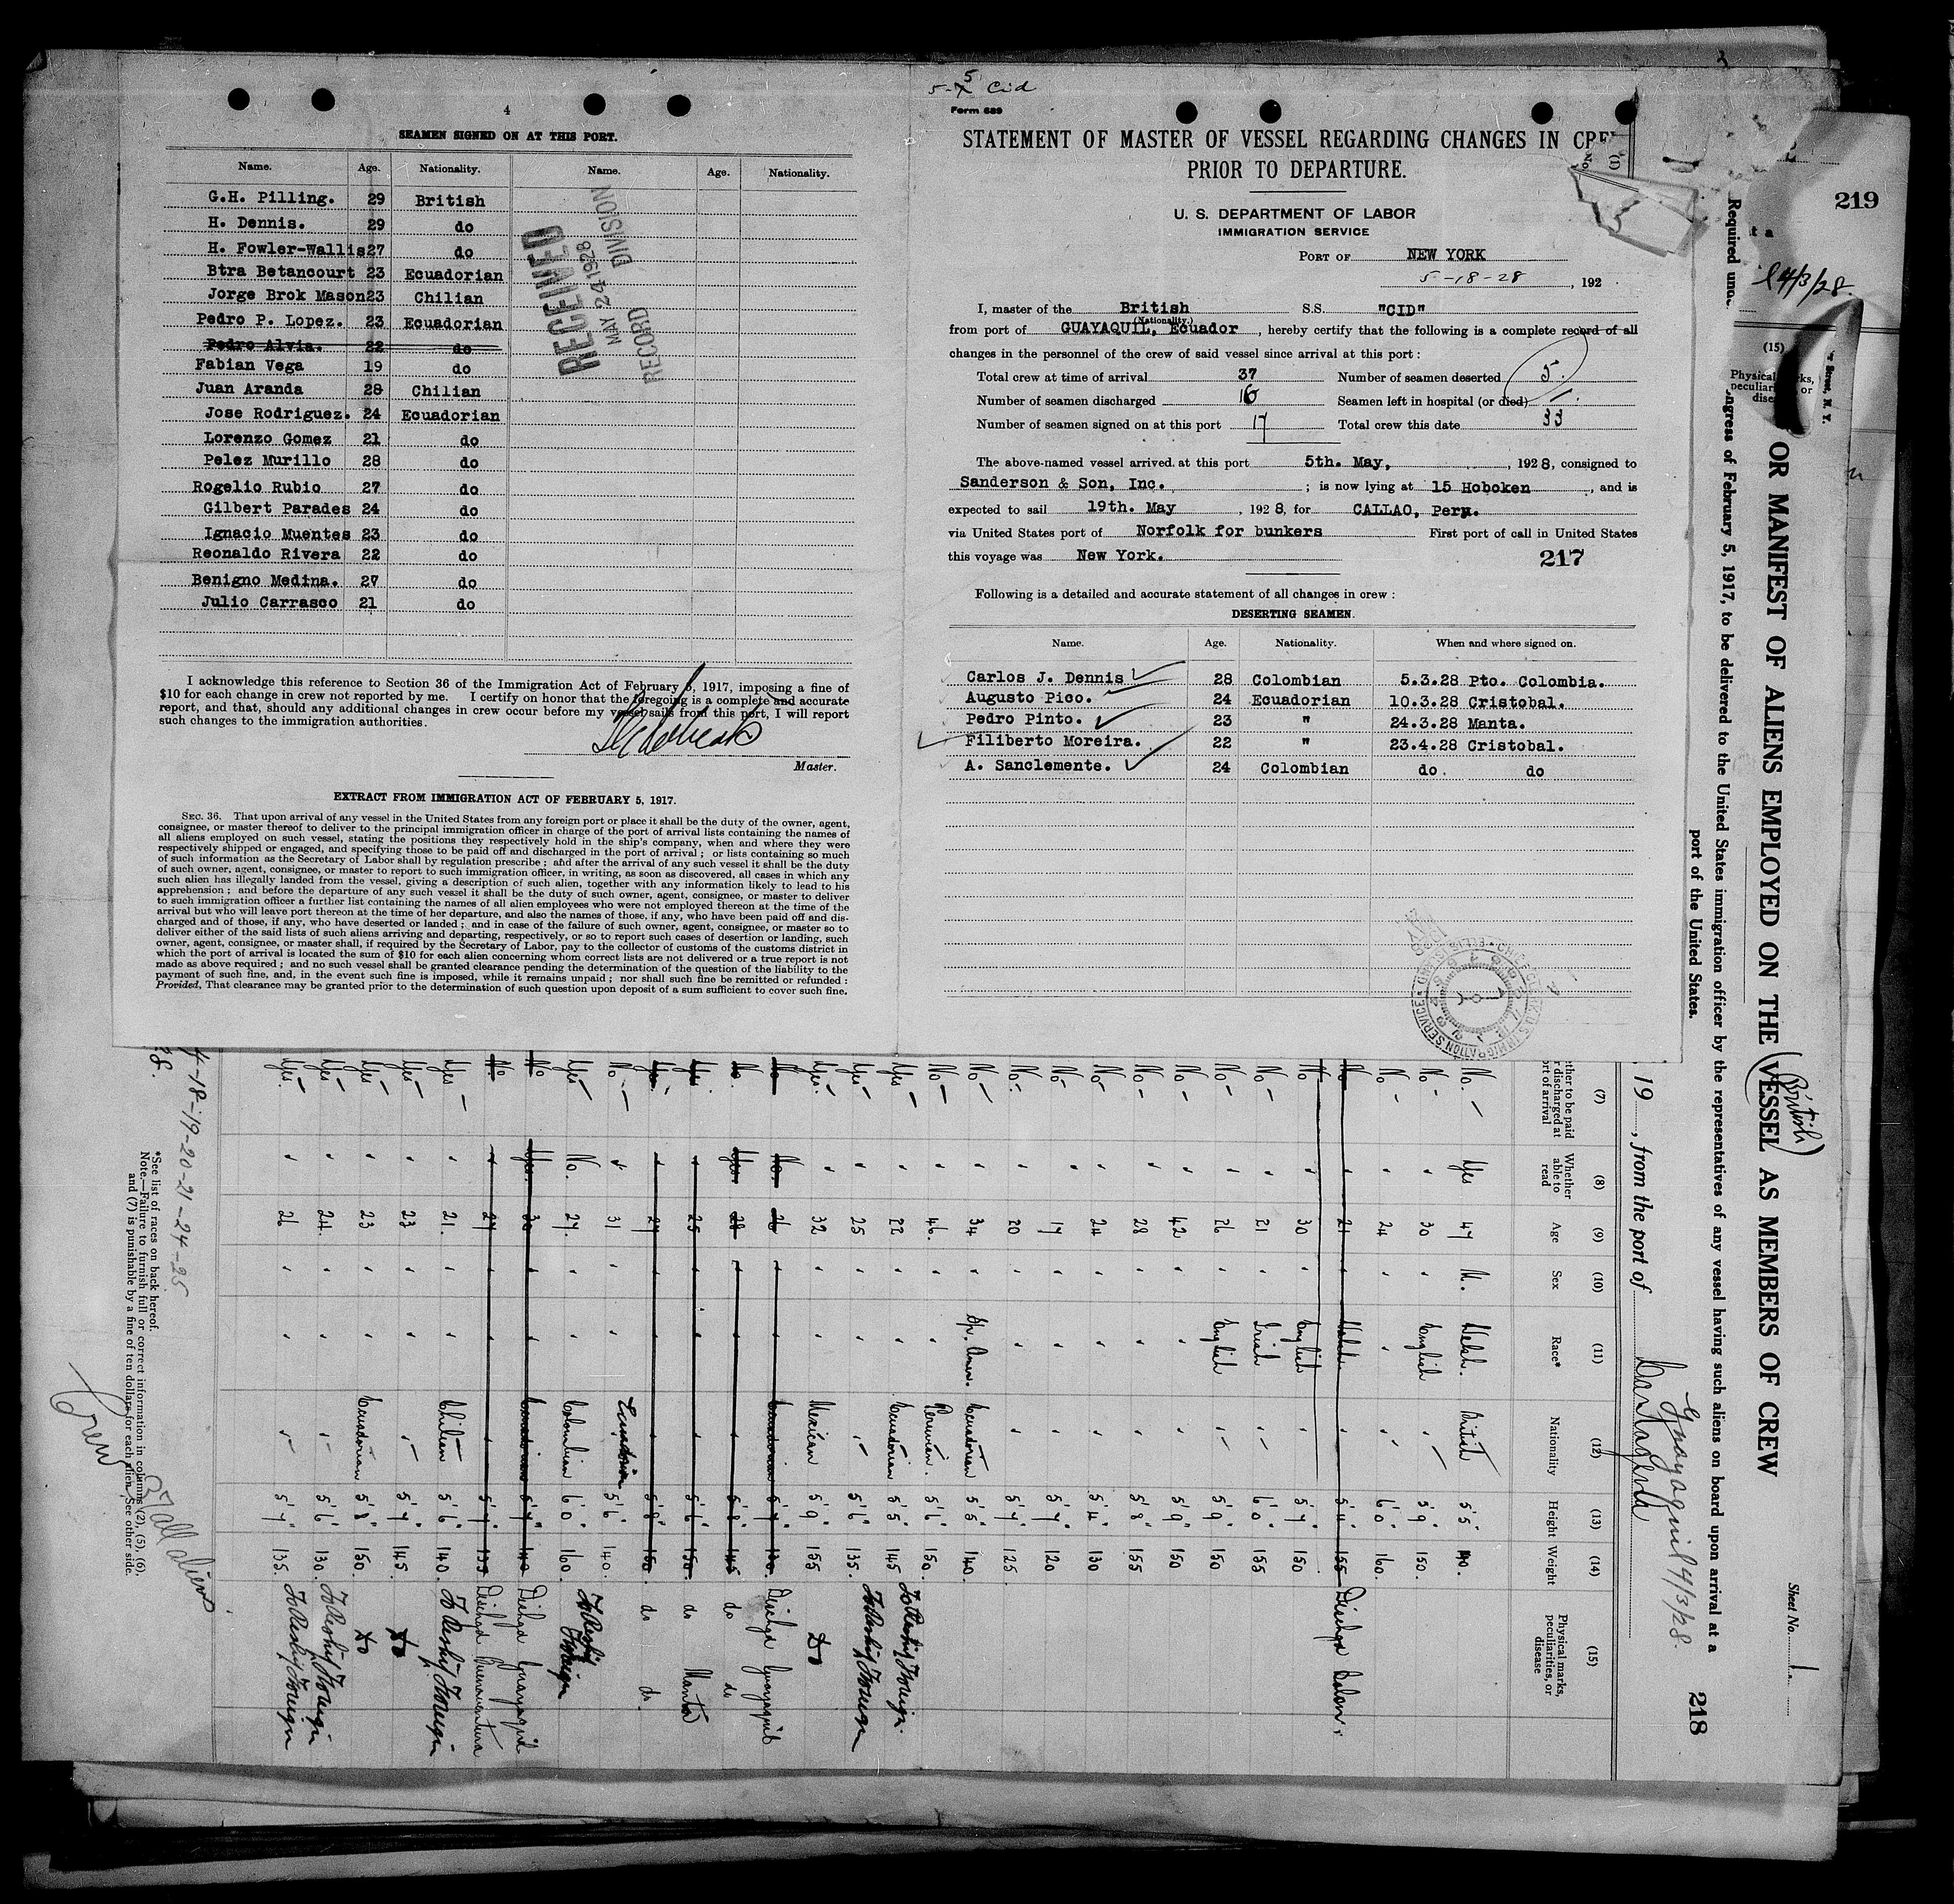 4
SEAMEN SIGNED ON AT THIS PORT.
Name. Age. Nationality. Name. Age. Nationality.
G.H. Pilling. 29 British
H. Dennis. 29 do
H. Fowler-Wallis 27 do
Btra Betancourt 23 Ecuadorian
Jorge Brok Mason 23 Chilian
Pedro P. Lopez. 23 Ecuadorian
Pedro Alvia. 22 do
Fabian Vega 19 do
Juan Aranda 28 Chilian
Jose Rodriguez. 24 Ecuadorian
Lorenzo Gomez 21 do
Pelez Murillo 28 do
Rogelio Rubio 27 do
Gilbert Parades 24 do
Ignacio Muentes 23 do
Reonaldo Rivera 22 do
Benigno Medina. 27 do
Julio Carrasco 21 do
RECEIVED
MAY 24 1928
RECORD DIVISION
I acknowledge this reference to Section 36 of the Immigration Act of February 5, 1917, imposing a fine of
$10 for each change in crew not reported by me. I certify on honor that the foregoing is a complete and accurate
report, and that, should any additional changes in crew occur before my vessel sails from this port, I will report
such changes to the immigration authorities.
Master.
EXTRACT FROM IMMIGRATION ACT OF FEBRUARY 5, 1917.
SEC. 36. That upon arrival of any vessel in the United States from any foreign port or place it shall be the duty of the owner, agent,
consignee, or master thereof to deliver to the principal immigration officer in charge of the port of arrival lists containing the names of
all aliens employed on such vessel, stating the positions they respectively hold in the ship's company, when and where they were
respectively shipped or engaged, and specifying those to be paid off and discharged in the port of arrival; or lists containing so much
of such information as the Secretary of Labor shall by regulation prescribe; and after the arrival of any such vessel it shall be the duty
of such owner, agent, consignee, or master to report to such immigration officer, in writing, as soon as discovered, all cases in which any
such alien has illegally landed from the vessel, giving a description of such alien, together with any information likely to lead to his
apprehension; and before the departure of any such vessel it shall be the duty of such owner, agent, consignee, or master to deliver
to such immigration officer a further list containing the names of all alien employees who were not employed thereon at the time of the
arrival but who will leave port thereon at the time of her departure, and also the names of those, if any, who have been paid off and dis-
charged and of those, if any, who have deserted or landed; and in case of the failure of such owner, agent, consignee, or master so to
deliver either of the said lists of such aliens arriving and departing, respectively, or so to report such cases of desertion or landing, such
owner, agent, consignee, or master shall, if required by the Secretary of Labor, pay to the collector of customs of the customs district in
which the port of arrival is located the sum of $10 for each alien concerning whom correct lists are not delivered or a true report is not
made as above required; and no such vessel shall be granted clearance pending the determination of the question of the liability to the
payment of such fine, and, in the event such fine is imposed, while it remains unpaid; nor shall such fine be remitted or refunded:
Provided, That clearance may be granted prior to the determination of such question upon deposit of a sum sufficient to cover such fine.
5 Cid
Form 689
STATEMENT OF MASTER OF VESSEL REGARDING CHANGES IN CRE
PRIOR TO DEPARTURE.
U. S. DEPARTMENT OF LABOR
IMMIGRATION SERVICE
PORT OF NEW YORK
5-18-28, 192
I, master of the British S.S. "CID"
(Nationality.)
from port of GUAYAQUIL, Ecuador, hereby certify that the following is a complete record of all
changes in the personnel of the crew of said vessel since arrival at this port:
Total crew at time of arrival 37 Number of seamen deserted 5
Number of seamen discharged 16 Seamen left in hospital (or died)
Number of seamen signed on at this port 17 Total crew this date 33
The above-named vessel arrived at this port 5th. May, , 1928, consigned to
Sanderson & Son, Inc. ; is now lying at 15 Hoboken , and is
expected to sail 19th. May , 1928, for CALLAO, Peru.
via United States port of Norfolk for bunkers First port of call in United States
this voyage was New York.
217
Following is a detailed and accurate statement of all changes in crew:
DESERTING SEAMEN.
Name. Age. Nationality. When and where signed on.
Carlos J. Dennis 28 Colombian 5.3.28 Pto. Colombia.
Augusto Pico. 24 Ecuadorian 10.3.28 Cristobal.
Pedro Pinto. 23 " 24.3.28 Manta.
Filiberto Moreira. 22 " 23.4.28 Cristobal.
A. Sanclemente. 24 Colombian do. do
219
4/3/28.
(15)
OR MANIFEST OF ALIENS EMPLOYED ON THE VESSEL AS MEMBERS OF CREW
(British)
ngress of February 5, 1917, to be delivered to the United States immigration officer by the representatives of any vessel having such aliens on board upon arrival at a
port of the United States.
Sheet No. 1
218
19 , from the port of Cartagena
Guayaquil 4/3/28.
(7) (8) (9) (10) (11) (12) (13) (14) (15)
Whether able to read Age Sex Race* Nationality Height Weight Physical marks, peculiarities, or disease
No. Yes 47 M. Welsh. British 5'5"
No 30 English 5'9" 150.
No 24 6'0" 160.
No 21 5'11" 155 Dischgd Colon.
No 30 English 5'7" 150
No 21 Irish 6'0" 155
No 26 English 5'9" 150
No 42 5'9" 150
No 28 5'8" 155
No 24 5'4" 130
No 17 5'7" 120
No 20 5'7" 125
No 34 Sp. Amer. Ecuadorian 5'5" 140.
No 46. Peruvian. 5'6" 150.
Yes 22 Ecuadorian 5'5" 145 To Reship Foreign.
Yes 25 5'6" 135. To Reship Foreign
Yes. 32 Mexican 5'9" 155 Do
No No. 26 Ecuadorian 5'7" 130. Dischgd Guayaquil
No. Yes. 28 5'8" 145 do do
Yes. 25 5'6" 150 do Manta
Yes. 27 5'8" 150. do do.
No. 31 Ecuadorian 5'6" 140.
Yes No. 27. Colombian 6'0" 160. To Reship Foreign
No Yes. 30 Ecuadorian 5'7" 140 Dischgd Guayaquil
No. 27 5'7" 135 Dischgd Buenaventura
Yes 21. Chilian 5'6" 140. To Reship Foreign
Yes 23 5'7" 145 Do
Yes 23 Ecuadorian 5'8" 150. Do
Yes 24. 5'6" 130. To Reship Foreign
Yes. 26 5'7" 135. To Reship Foreign
18-19-20-21-24-25
*See list of races on back hereof.
Note.—Failure to furnish full or correct information in columns (2), (5), (6),
and (7) is punishable by a fine of ten dollars for each alien. See other side.
37 all aliens
Crew